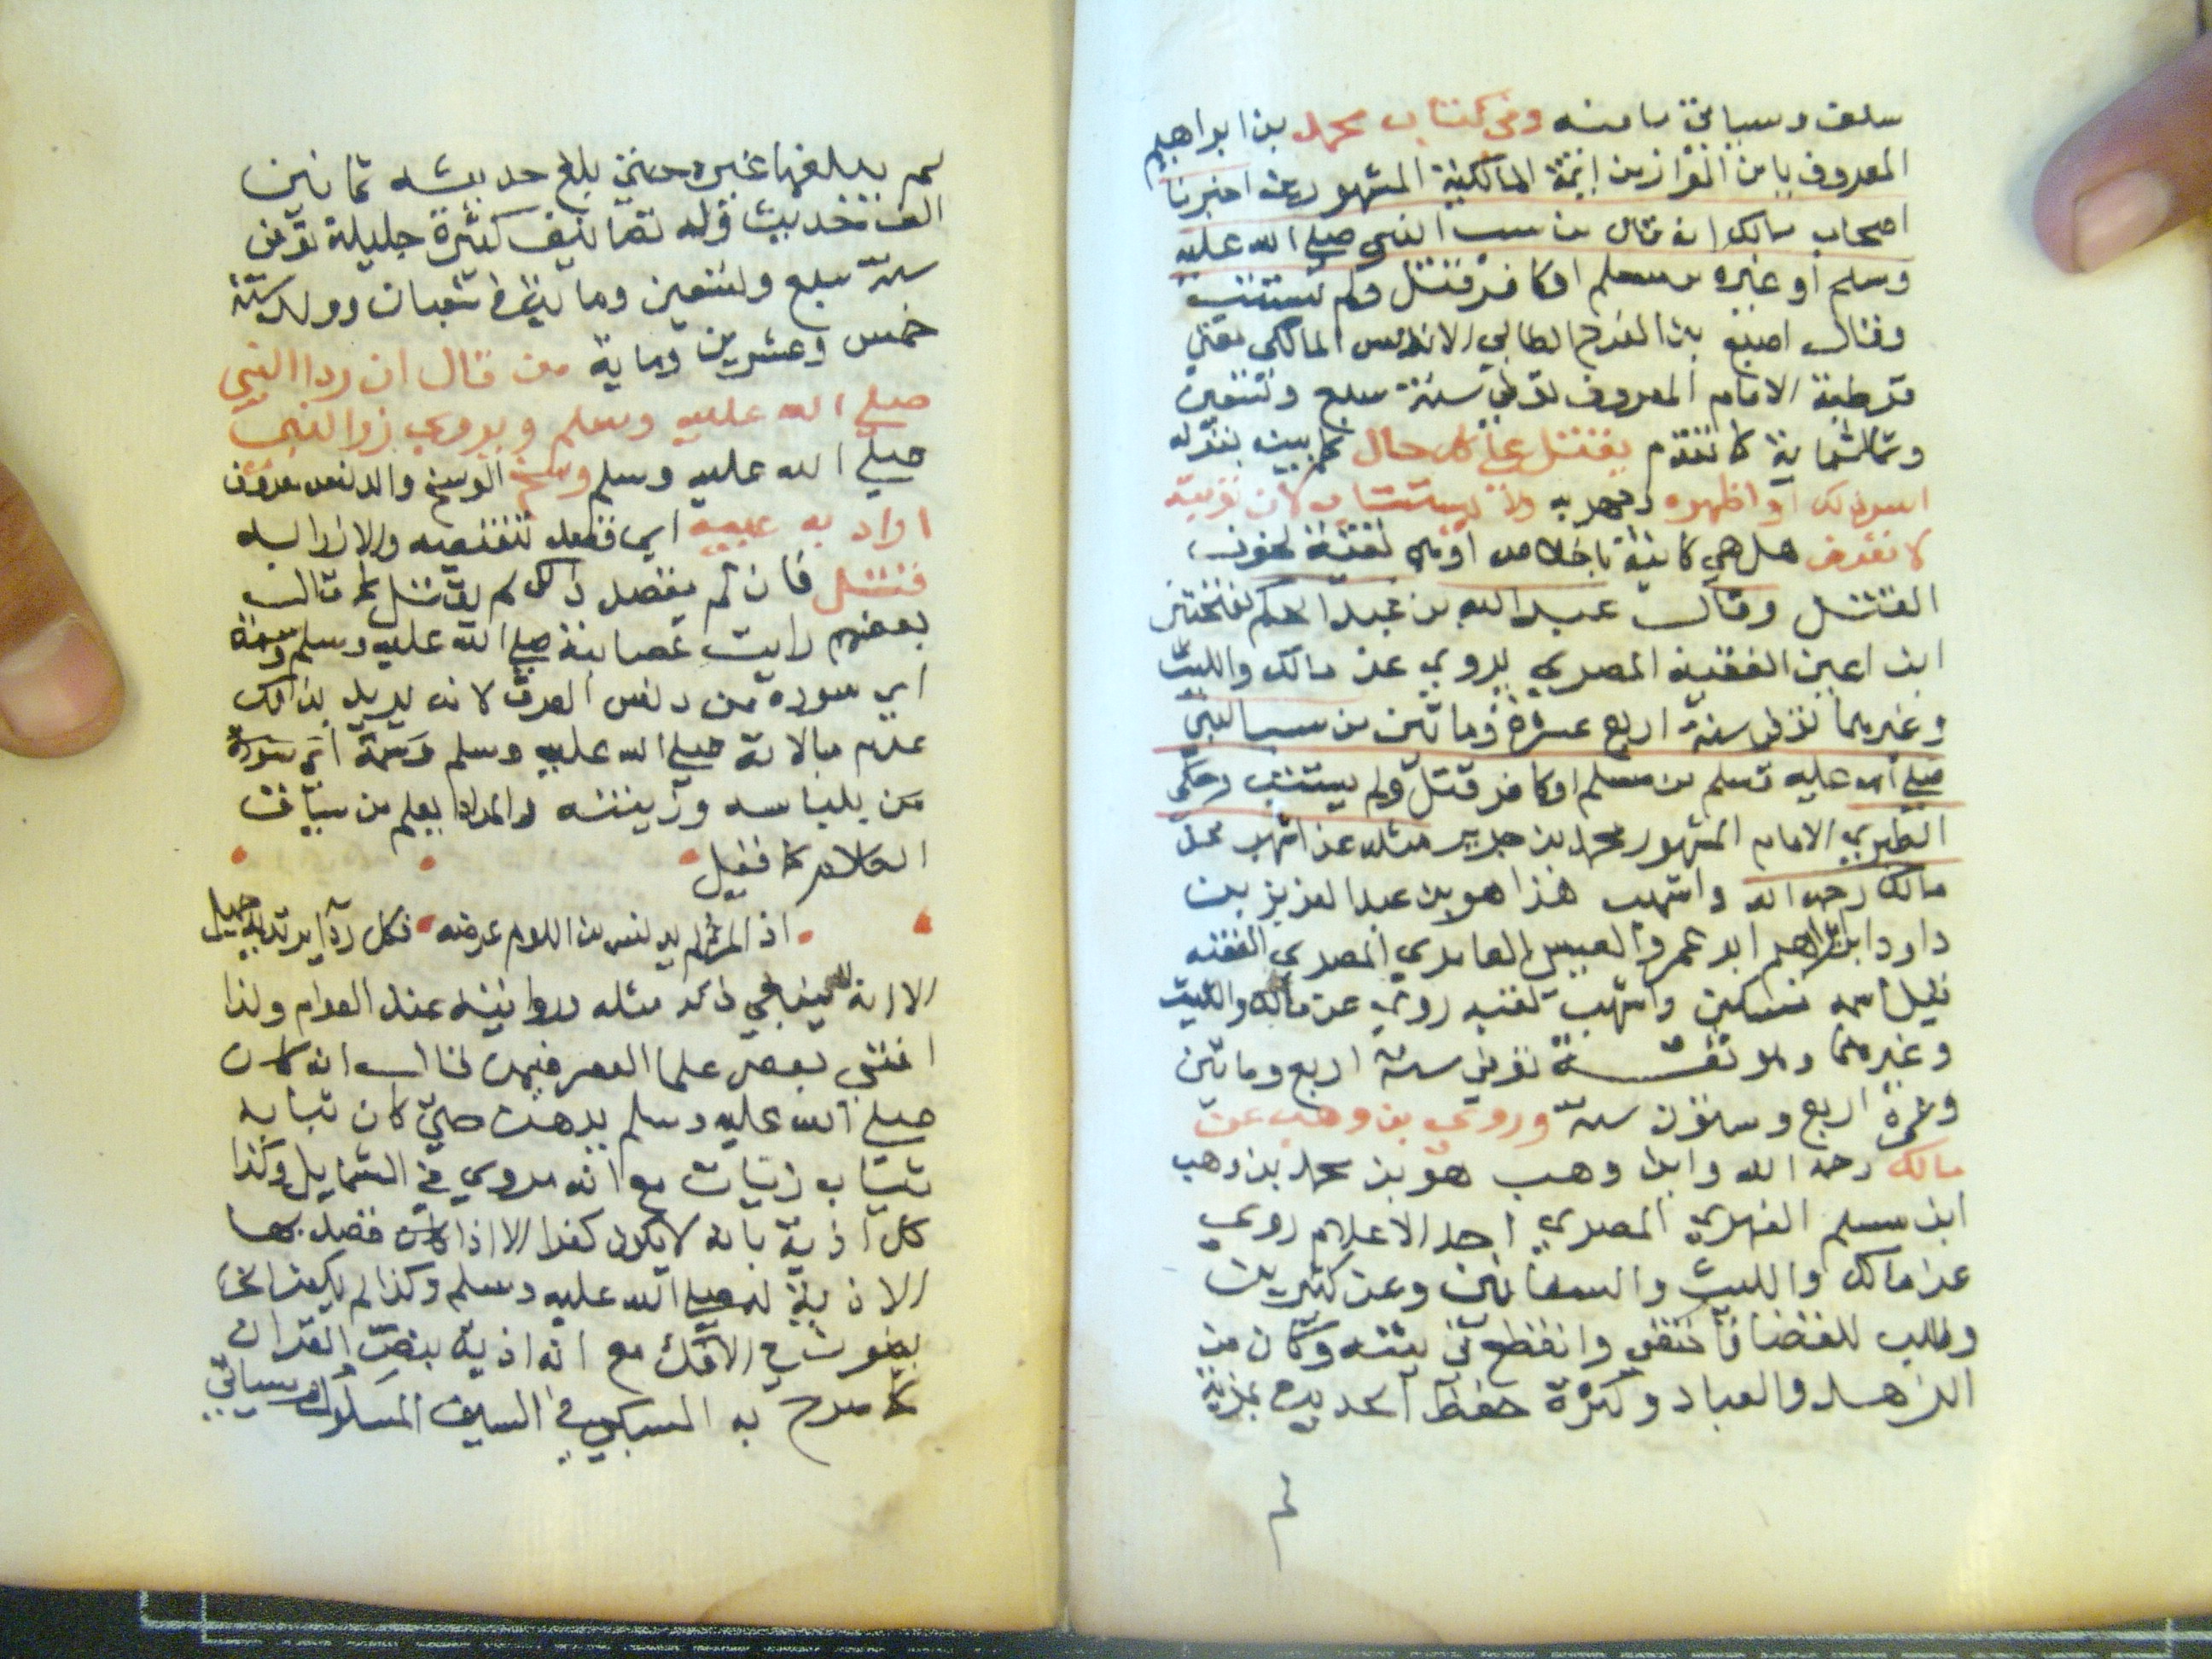 سلف وسياتي ما فيه وفي كتاب محمد بن ابراهيم
المعروف بابن المواز من ايمة المالكية المشهورين اخبرنا
اصحاب مالك انه قال من سب النبي صلى الله عليه
وسلم او غيره من مسلم او كافر قتل ولم يستتب
وقال اصبغ بن الفرج الطائي الاندلسي المالكي مفتي
قرطبة الامام المعروف توفي سنة سبع وتسعين
وثلثماية كما تقدم يقتل على كل حال كما بينه بقوله
اسر ذلك او اظهره وجهر به ولا يستتاب لان توبته
لا تعرف هل هي كاينة باخلاص او هي تقية لخوف
القتل وقال عبد الله بن عبد الحكم بفتحتين
ابن اعين الفقيه المصري يروي عن مالك والليث
وغيرهما توفي سنة اربع عشرة وماتين من سب النبي
صلى الله عليه وسلم من مسلم او كافر قتل ولم يستتب وحكى
الطبري الامام المشهور محمد بن جرير مثله عن اشهب عن
مالك رحمه الله واشهب هذا هو بن عبد العزيز بن
داود ابن ابراهيم ابو عمرو العامري المصري الفقيه
قيل اسمه مسكين واشهب لقبه روى عن مالك والليث
وغيرهما وهو ثقة توفي سنة اربع وماتين
وعمره اربع وستون سنة وروى بن وهب عن
مالك رحمه الله وابن وهب هو بن محمد بن وهب
ابن مسلم الفهري المصري احد الاعلام روى
عن مالك والليث والسفيانين وعن كثيرين
وطلب للقضا فاختفى وانقطع في بيته وكان من
الزهاد والعباد وكثرة حفظ الحديث بمزية
لم
لم يبلغها غيره حتى بلغ حديثه ثمانين
الف حديث وله تصانيف كثيرة جليلة توفي
سنة سبع وتسعين وماية في شعبان وولد سنة
خمس وعشرين وماية من قال ان ردا النبي
صلى الله عليه وسلم ويروى زر النبي
صلى الله عليه وسلم وسخ الوسخ والدنس معروف
اراد به عيبه اي قصد تنقيصه والازرا به
قتل فان لم يقصد ذلك لم يقتل كما قال
بعضهم رايت عصابة صلى الله عليه وسلم وسخة
اي سوده من دنس العرق لانه يريد بذلك
عدم مبالاته صلى الله عليه وسلم
من بلباسه وزينته والمراد يعلم من سياق
الكلام كما قيل
اذا المرء لم يدنس من اللوم عرضه فكل ردآ يرتديه جميل
الا انه ينبغي ذكر مثله وروايته عند العوام ولذا
افتى بعض علما العصر فيمن قال انه كان
صلى الله عليه وسلم يدهن حتى كان ثيابه
ثياب زيات مع انه مروي في الشمايل وكذا
كل اذية بانه لا يكون كفرا الا اذا كان قصد بها
الاذية له صلى الله عليه وسلم وكذا لم يكفر
بخوض في الافك مع انه اذية بنص القران
كما صرح به السبكي في السيف المسلول وسياتي